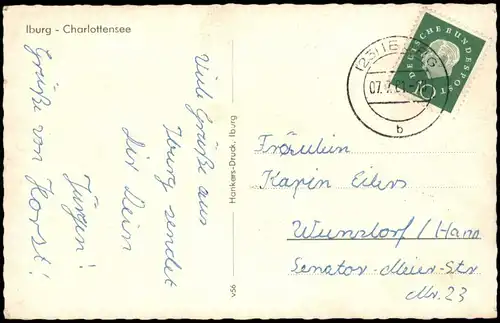 Iburg - Charlottensee
Viele Grüße aus
Iburg sendet
Dir Dein
Jürgen!
Grüße von Horst!
Hankers-Druck, Iburg
V56
DEUTSCHE BUNDESPOST
10
(23) IBURG
b
Fräulein
Karin Eilers
Wunstorf / Hann
Senator-Meier-Str
Nr. 23